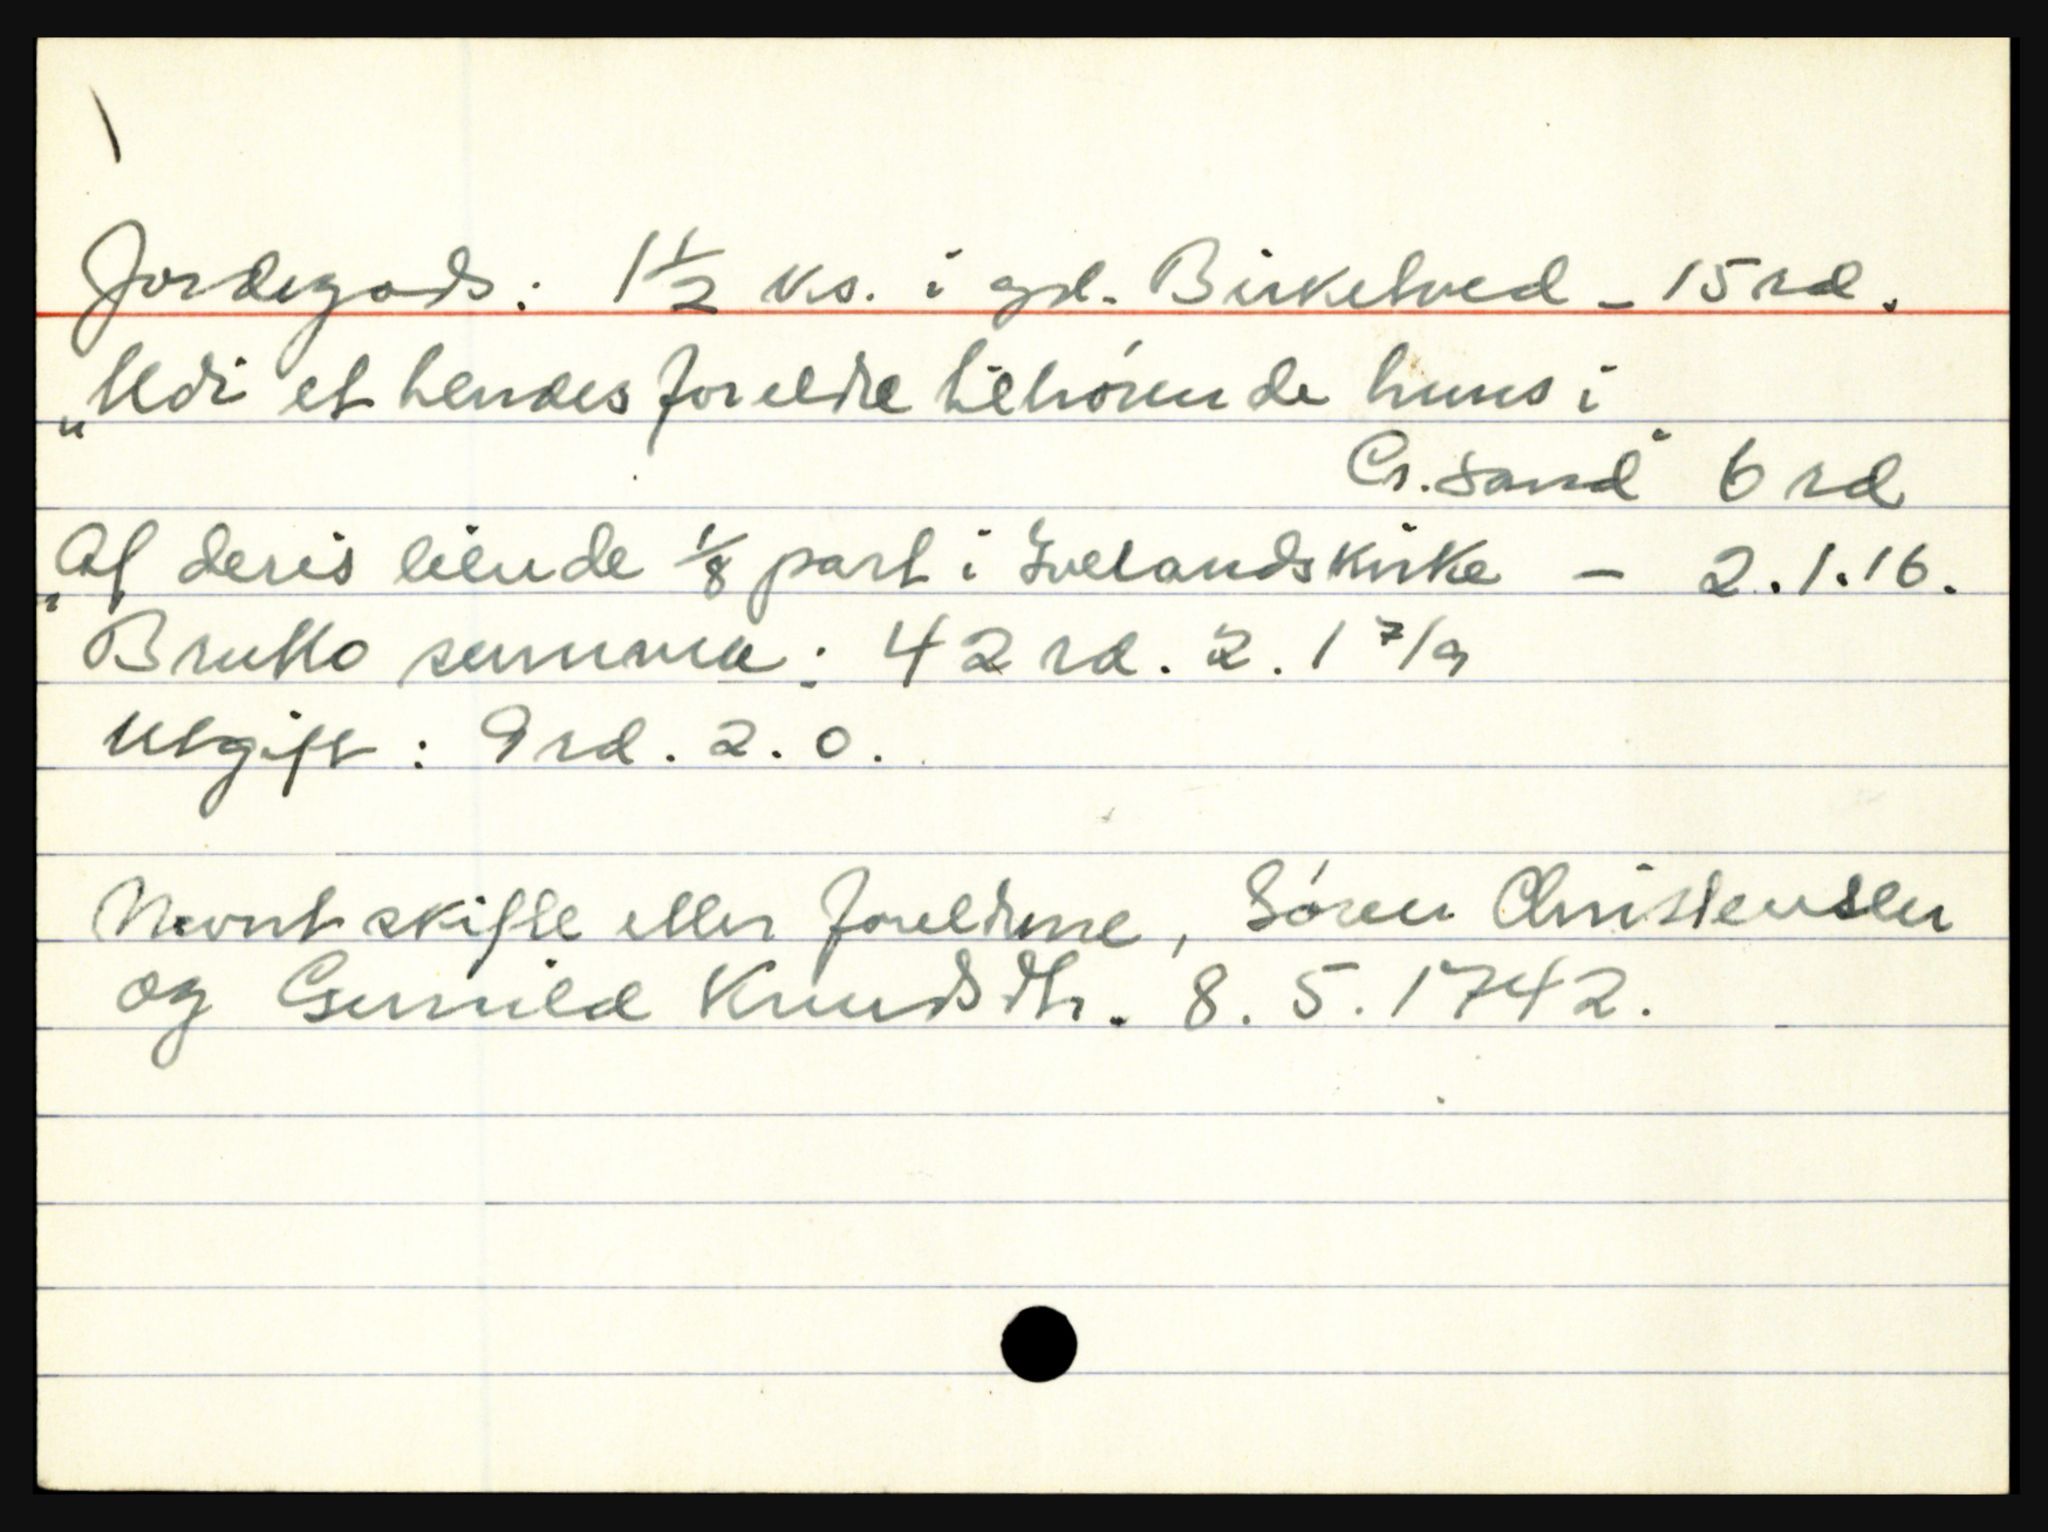 Jordegods: 1½ ks. i gd. Birketved - 15 rd.
"Udi et hendes foreldre tilhørende huus i
Cr.sand" 6 rd
"Af deris eiende 1/8 part i Ivelandskirke - 2.1.16.
Brutto summa: 42 rd. 2. 1 7/9
Utgift: 9 rd. 2. 0.
Nevnt skifte etter foreldrene, Søren Christensen
og Gunnild Knudsdtr. 8. 5. 1742.